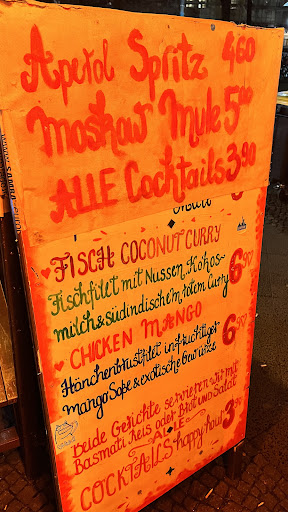 Aperol Spritz 4,60
Moskow Mule 5,00
ALLE Cocktails 3,90
FISCH COCONUT CURRY
Fischfilet mit Nussen, Kokos-
milch & südindischem rotem Curry 6,90
CHICKEN MANGO
Hänchenbrustfilet in fruchtiger
Mango Soße & exotische Gewürze 6,90
Beide Gerichte servieren wir mit
Basmati Reis oder Brot und Salat
ALLE
COCKTAILS happy hour 3,90